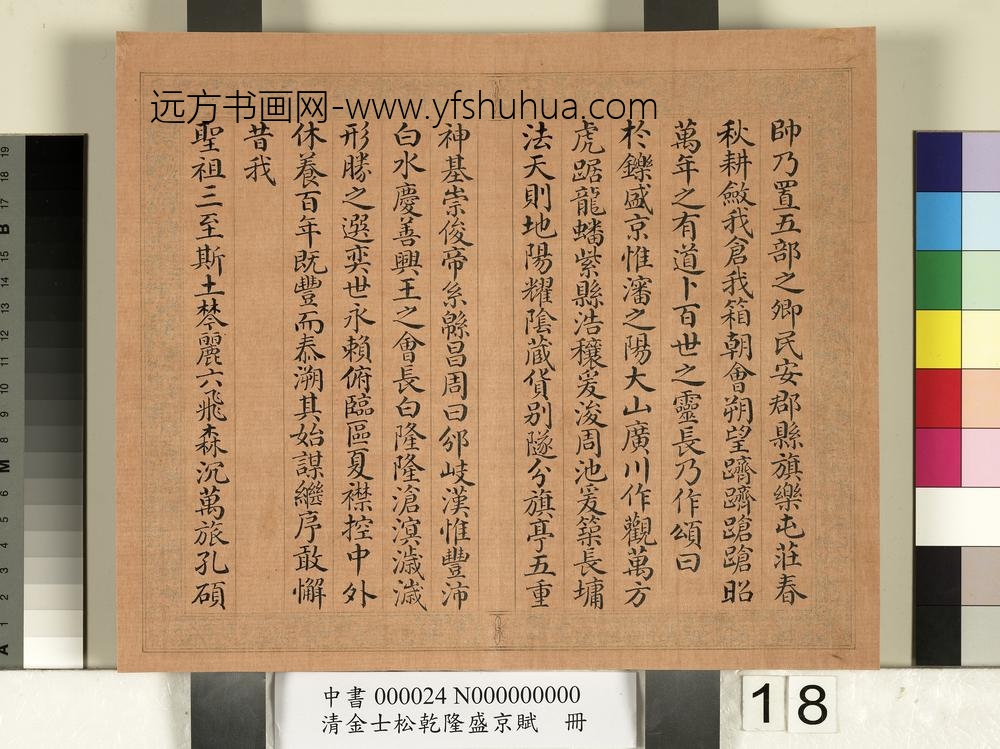 远方书画网-www.yfshuhua.com
帥乃置五部之卿民安郡縣旗樂屯莊春
秋耕斂我倉我箱朝會朔望躋躋蹌蹌昭
萬年之有道卜百世之靈長乃作頌曰
於鑠盛京惟瀋之陽大山廣川作觀萬方
虎踞龍蟠紫縣浩穰爰浚周池爰築長墉
法天則地陽耀陰藏貨別隧分旗亭五重
神基崇俊帝系緜昌周曰邠岐漢惟豐沛
白水慶善興王之會長白隆隆滄溟濊濊
形勝之選奕世永賴俯臨區夏襟控中外
休養百年既豐而泰溯其始謀繼序敢懈
昔我
聖祖三至斯土棽麗六飛森沉萬旅孔碩
中書 000024 N000000000
清金士松乾隆盛京賦 冊
18
19
18
17
16
15
B
14
13
12
11
10
9
8
M
6
5
4
3
2
1
A